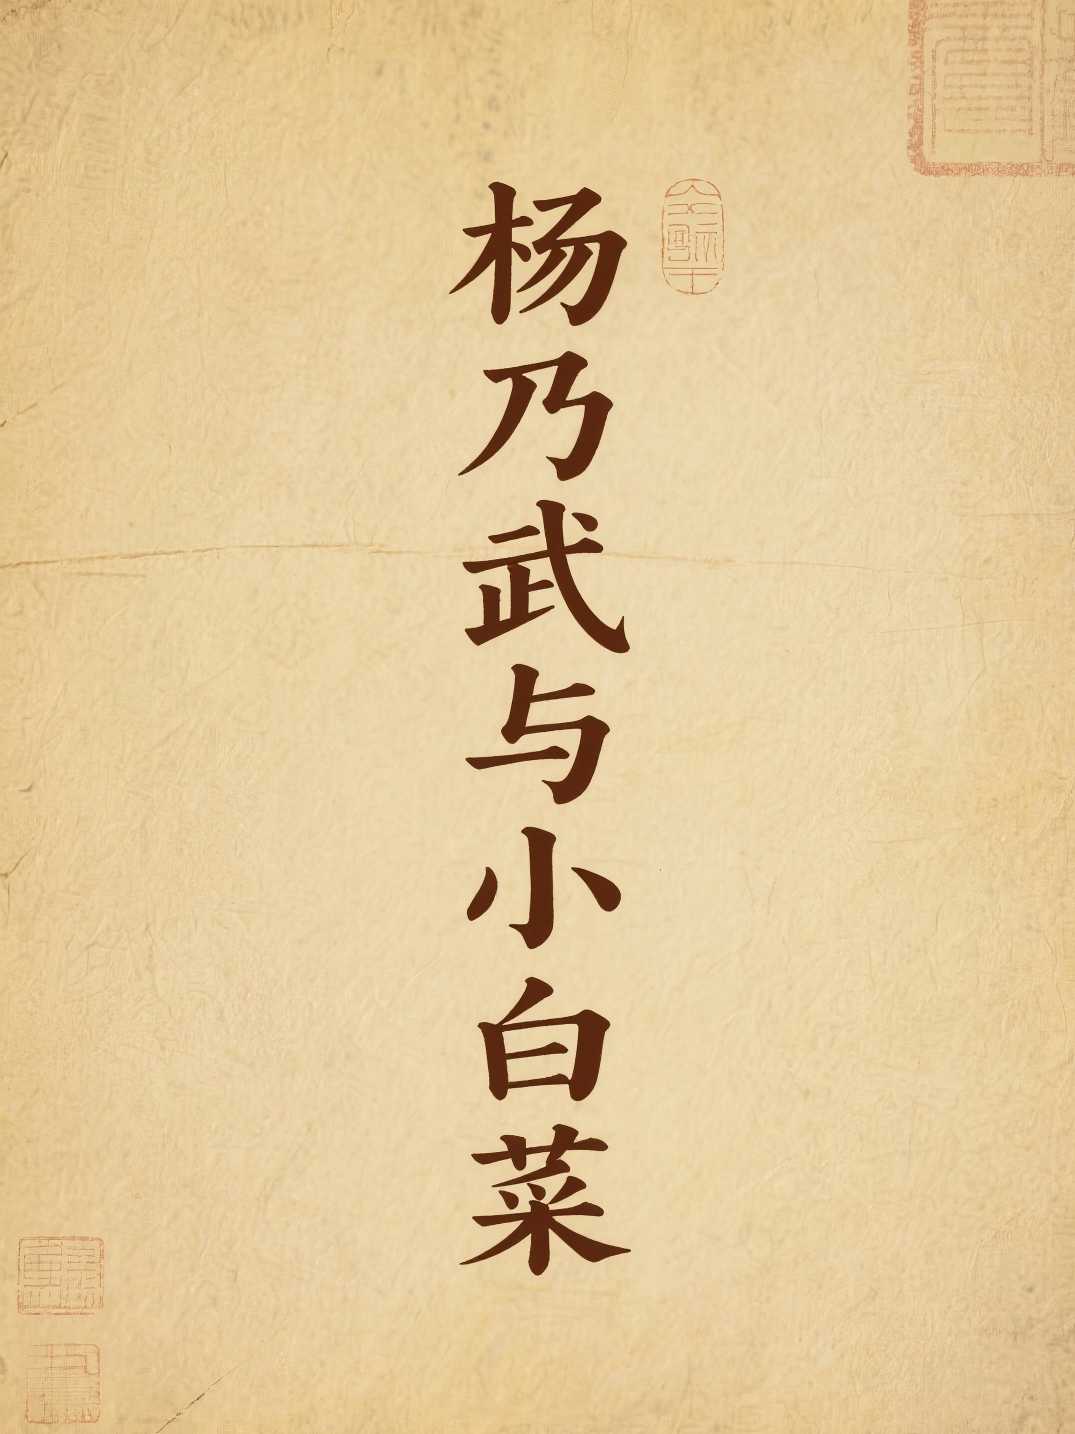 杨乃武与小白菜